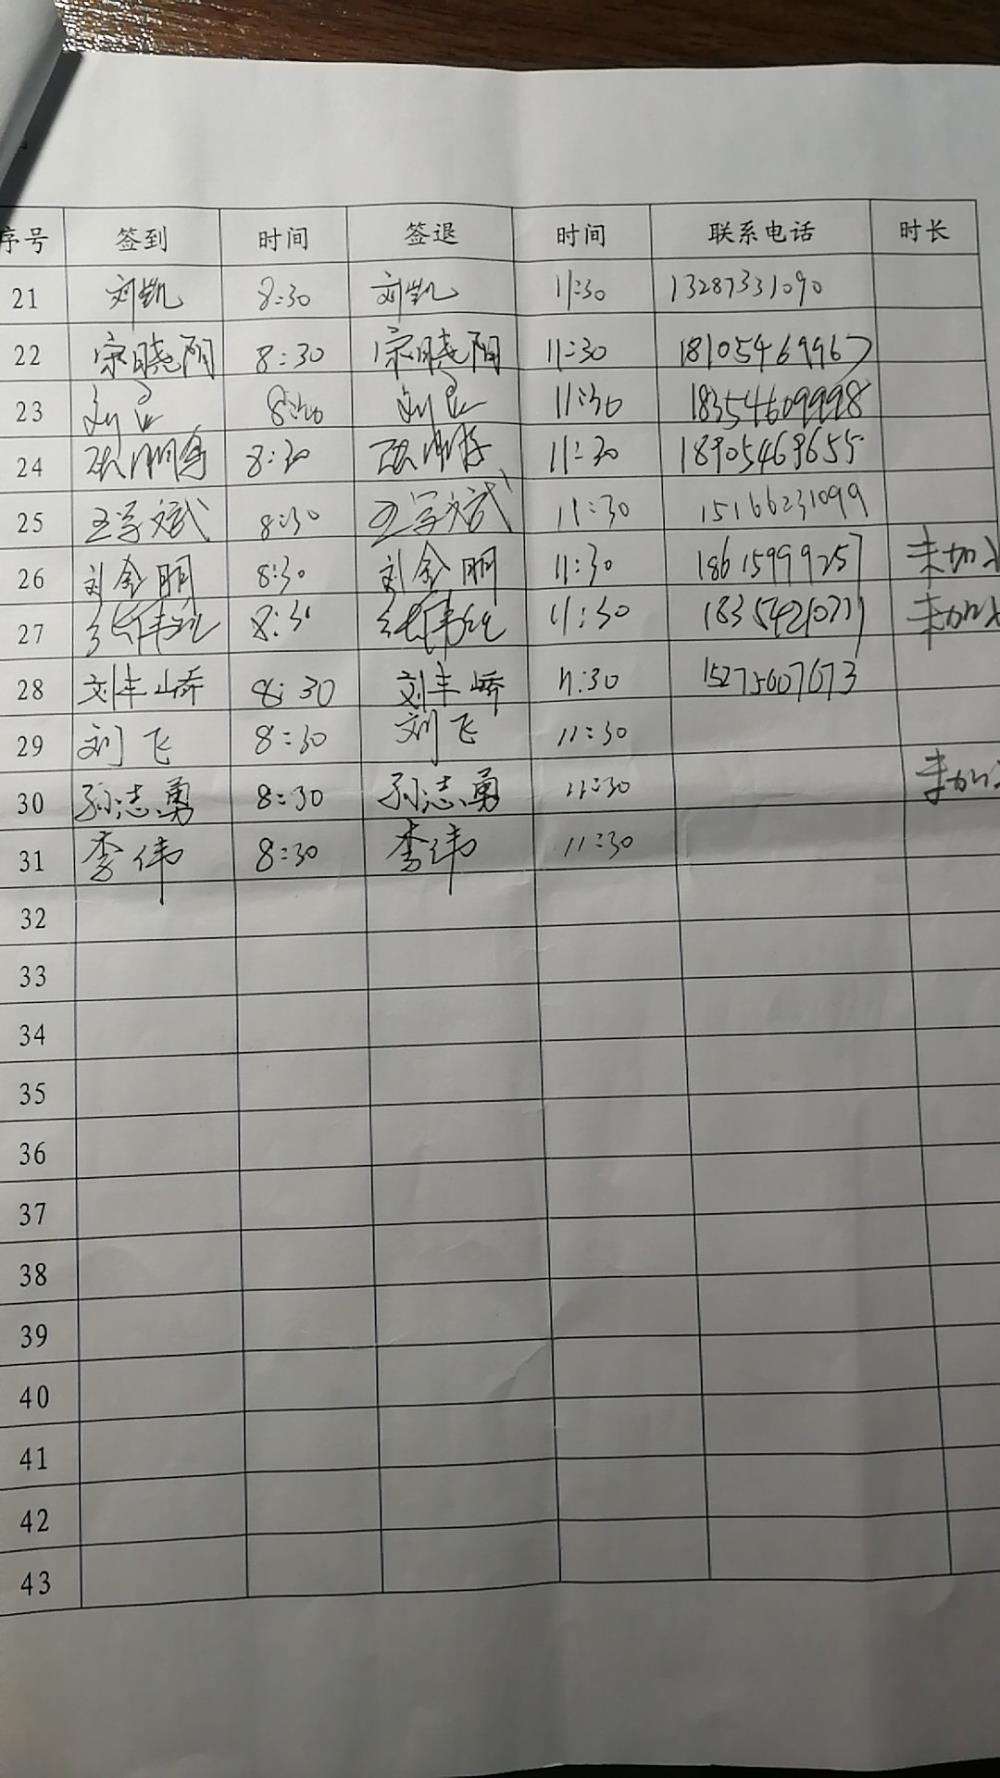 序号 签到 时间 签退 时间 联系电话 时长
21 刘凯 8:30 刘凯 11:30 13287331090
22 宋晓阳 8:30 宋晓阳 11:30 18105469967
23 刘 刘 11:30 18354609998
24 8:30 11:30 18905469655
25 王学斌 8:30 王学斌 11:30 15166231099
26 刘金明 8:30 刘金明 11:30 18615999257 未加
27 8:30 11:30 未加
28 刘丰峤 8:30 刘丰峤 11:30 15275607673
29 刘飞 8:30 刘飞 11:30
30 孙志勇 8:30 孙志勇 11:30 未加
31 李伟 8:30 李伟 11:30
32
33
34
35
36
37
38
39
40
41
42
43